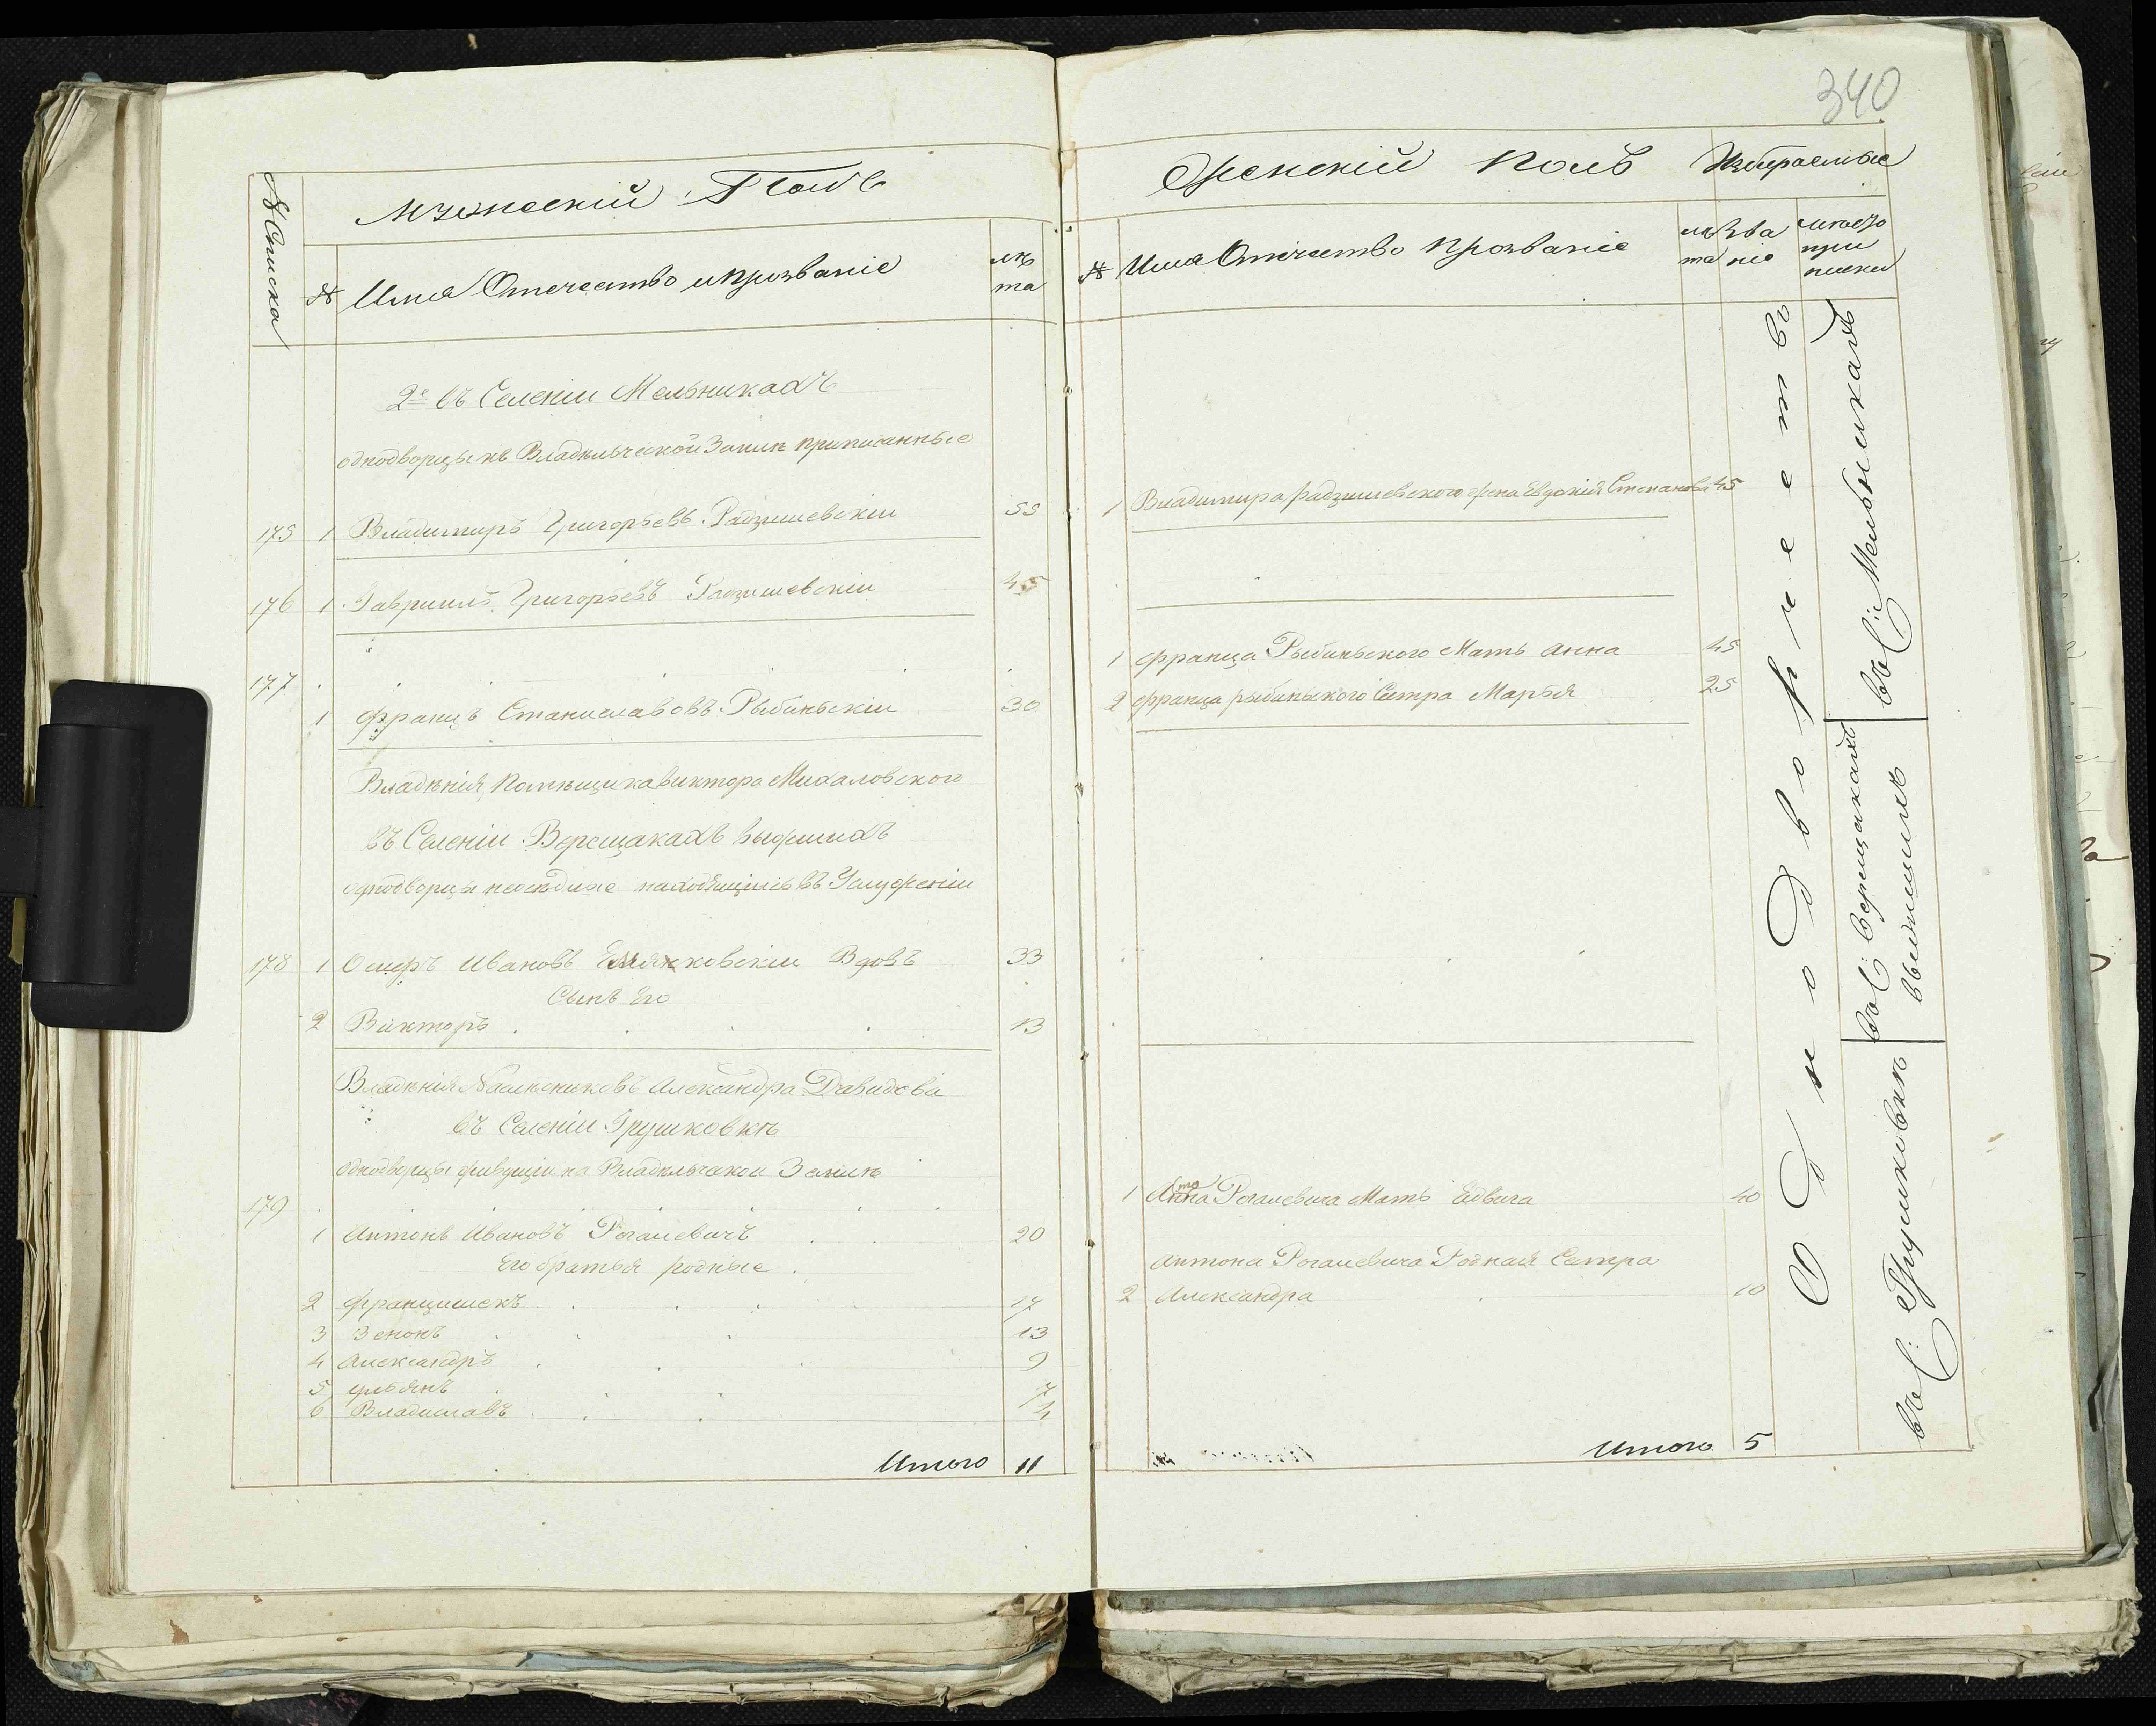 340
№ Списка
Мужескій Полъ
№ Имя Отечество и прозваніе лѣта
2е въ Селеніи Мельникахъ
однодворцы на Владѣльческой Землѣ приписанные
175 1 Владимиръ Григорьевъ Радзишевскіи 55
176 1 Гавриилъ Григорьевъ Радзишевскіи 45
177
1 францъ Станиславовъ Рыбинскіи 30
Владѣнія Помѣщика виктора Михаловского
въ Селеніи Верещакахъ
однодворцы неосѣдлые находящіисъ въ Услуженіи
178 1 Ивановъ Вдовъ 33
Сынъ Его
2 Викторъ 13
Владѣнія Наслѣниковъ Александра Давидова
въ Селеніи Грушковкѣ
однодворцы живущіи на Владѣльческои Землѣ
179
1 Антонъ Ивановъ Рогалевичъ 20
Его братья родные
2 францишекъ 17
3 Зенонъ 13
4 Александръ 9
5 ульянъ 7
6 Владиславъ 4
Итого 11
Женскій Полъ
Избираемые
№ Имя Отечество Прозваніе лѣта Званіе мѣсто приписки
1 Владимира радзишевского жена Евдокія Степанова 45
1 франца Рыбинского Мать Анна 45
2 франца рыбинского Сестра Марья 25
1 Рогалевича Мать Едвига 40
Антона Рогалевича Родная Сестра
2 Александра 10
Итого 5
Однодворчество
въ С: Мельникахъ
въ С: верещакахъ
въ С: Грушковкѣ